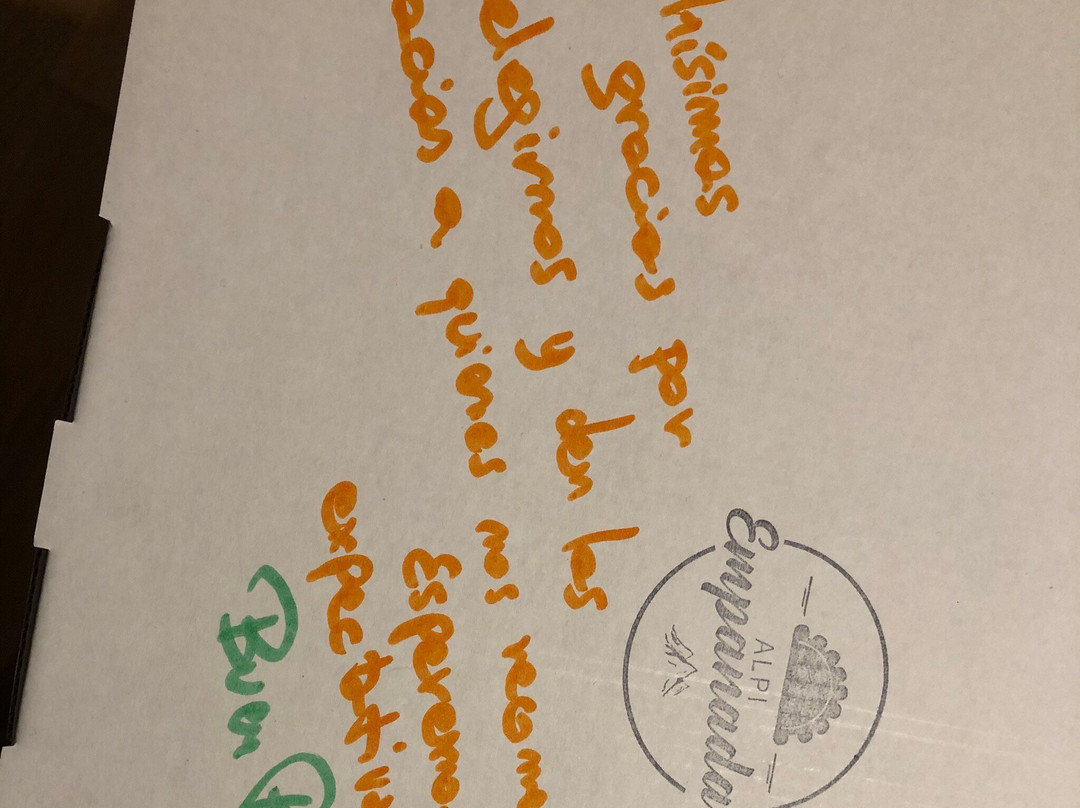 hisimas
gracias por
elegirnos y den las
acias a quienes nos recom
Esperamo
expectativ
Buen P
ALPI
Empanada